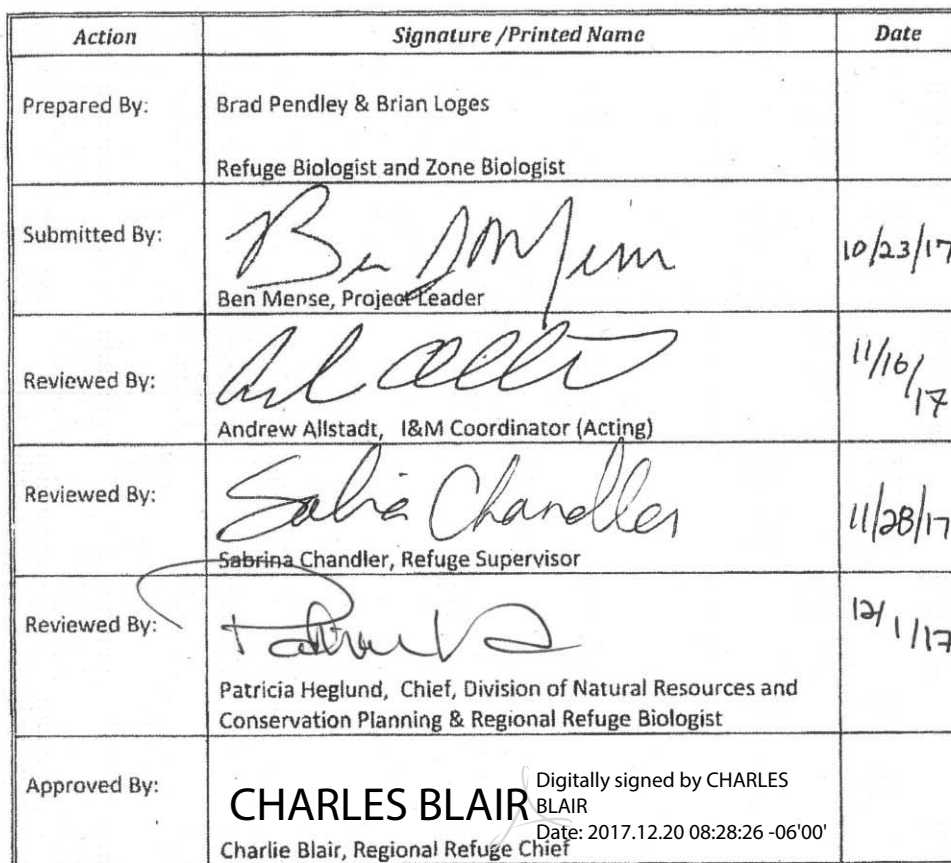 Action Signature /Printed Name Date
Prepared By: Brad Pendley & Brian Loges
Refuge Biologist and Zone Biologist
Submitted By: 10/23/17
Ben Mense, Project Leader
Reviewed By: 11/16/17
Andrew Allstadt, I&M Coordinator (Acting)
Reviewed By: Sabrina Chandler 11/28/17
Sabrina Chandler, Refuge Supervisor
Reviewed By: 12/1/17
Patricia Heglund, Chief, Division of Natural Resources and
Conservation Planning & Regional Refuge Biologist
Approved By: CHARLES BLAIR Digitally signed by CHARLES
BLAIR
Date: 2017.12.20 08:28:26 -06'00'
Charlie Blair, Regional Refuge Chief